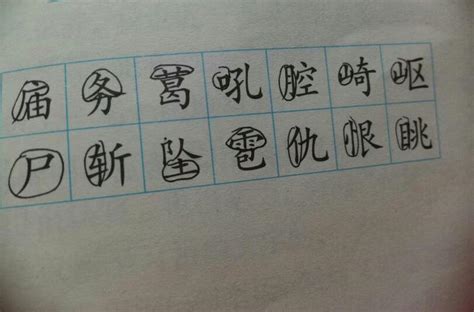 届务葛吼腔崎岖
尸斩坠雹仇恨眺